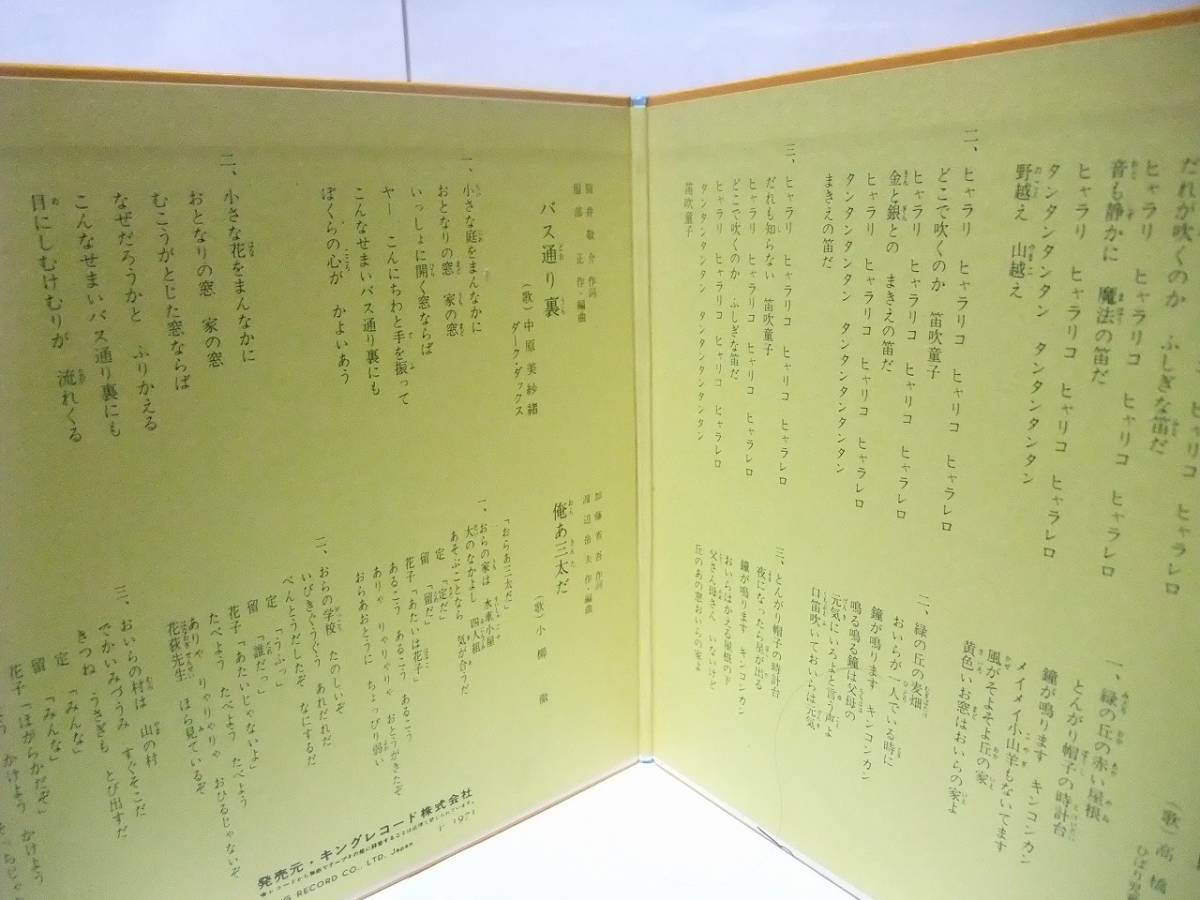 だれが吹くのか　ふしぎな笛だ
ヒャラリ　ヒャラリコ　ヒャリコ　ヒャラレロ
音も静かに　魔法の笛だ
ヒャラリ　ヒャラリコ　ヒャリコ　ヒャラレロ
タンタンタンタン　タンタンタンタン
野越え　山越え
二、ヒャラリ　ヒャラリコ　ヒャリコ　ヒャラレロ
どこで吹くのか　笛吹童子
ヒャラリ　ヒャラリコ　ヒャリコ　ヒャラレロ
金と銀との　まきえの笛だ
ヒャラリ　ヒャラリコ　ヒャリコ　ヒャラレロ
タンタンタンタン　タンタンタンタン
まきえの笛だ
三、ヒャラリ　ヒャラリコ　ヒャリコ　ヒャラレロ
だれも知らない　笛吹童子
ヒャラリ　ヒャラリコ　ヒャリコ　ヒャラレロ
どこで吹くのか　ふしぎな笛だ
ヒャラリ　ヒャラリコ　ヒャリコ　ヒャラレロ
タンタンタンタン　タンタンタンタン
笛吹童子
（歌）高橋
ひばり児
一、緑の丘の赤い屋根
とんがり帽子の時計台
鐘が鳴ります　キンコンカン
メイメイ小山羊もないてます
風がそよそよ丘の家
黄色いお窓はおいらの家よ
二、緑の丘の麦畑
おいらが一人でいる時に
鐘が鳴ります　キンコンカン
鳴る鳴る鐘は父母の
元気にいろよと言う声よ
口笛吹いておいらは元気
三、とんがり帽子の時計台
夜になったら星が出る
鐘が鳴ります　キンコンカン
おいらはかえる屋根の子
父さん母さん　いないけど
丘のあの窓おいらの家よ
筒井敬介　作詞
服部　正　作・編曲
バス通り裏
（歌）中原美紗緒
ダークダックス
一、小さな庭をまんなかに
おとなりの窓　家の窓
いっしょに開く窓ならば
ヤー　こんにちわと手を振って
こんなせまいバス通り裏にも
ぼくらの心が　かよいあう
二、小さな花をまんなかに
おとなりの窓　家の窓
むこうがとじた窓ならば
なぜだろうかと　ふりかえる
こんなせまいバス通り裏にも
目にしむけむりが　流れくる
作詞
渡辺岳夫　作・編曲
俺あ三太だ
（歌）小柳　徹
「おらあ三太だ」
一、おらの家は　水車小屋
犬のなかよし　四人組
あそぶことなら　気が合うだ
定「定だ」
留「留だ」
花子「あたいは花子」
あるこう　あるこう　あるこう
ありゃ　りゃりゃりゃ　おとうがきた
おらあおとうに　ちょっぴり弱い
二、おらの学校　たのしいぞ
いびきぐうぐう　あれだれだ
べんとうだしたぞ　なにするだ
定「うふっ」
留「誰だっ」
花子「あたいじゃないよ」
たべよう　たべよう　たべよう
ありゃ　りゃりゃりゃ　おひるじゃないぞ
花荻先生　ほら見ているぞ
三、おいらの村は　山の村
でっかいみづうみ　すぐそこだ
きつね　うさぎも　とび出すだ
定「みんな」
留「みんな」
花子「ほがらかだぞ」
かけよう　かけよう
発売元・キングレコード株式会社
℗ 1971
RECORD CO., LTD. Japan